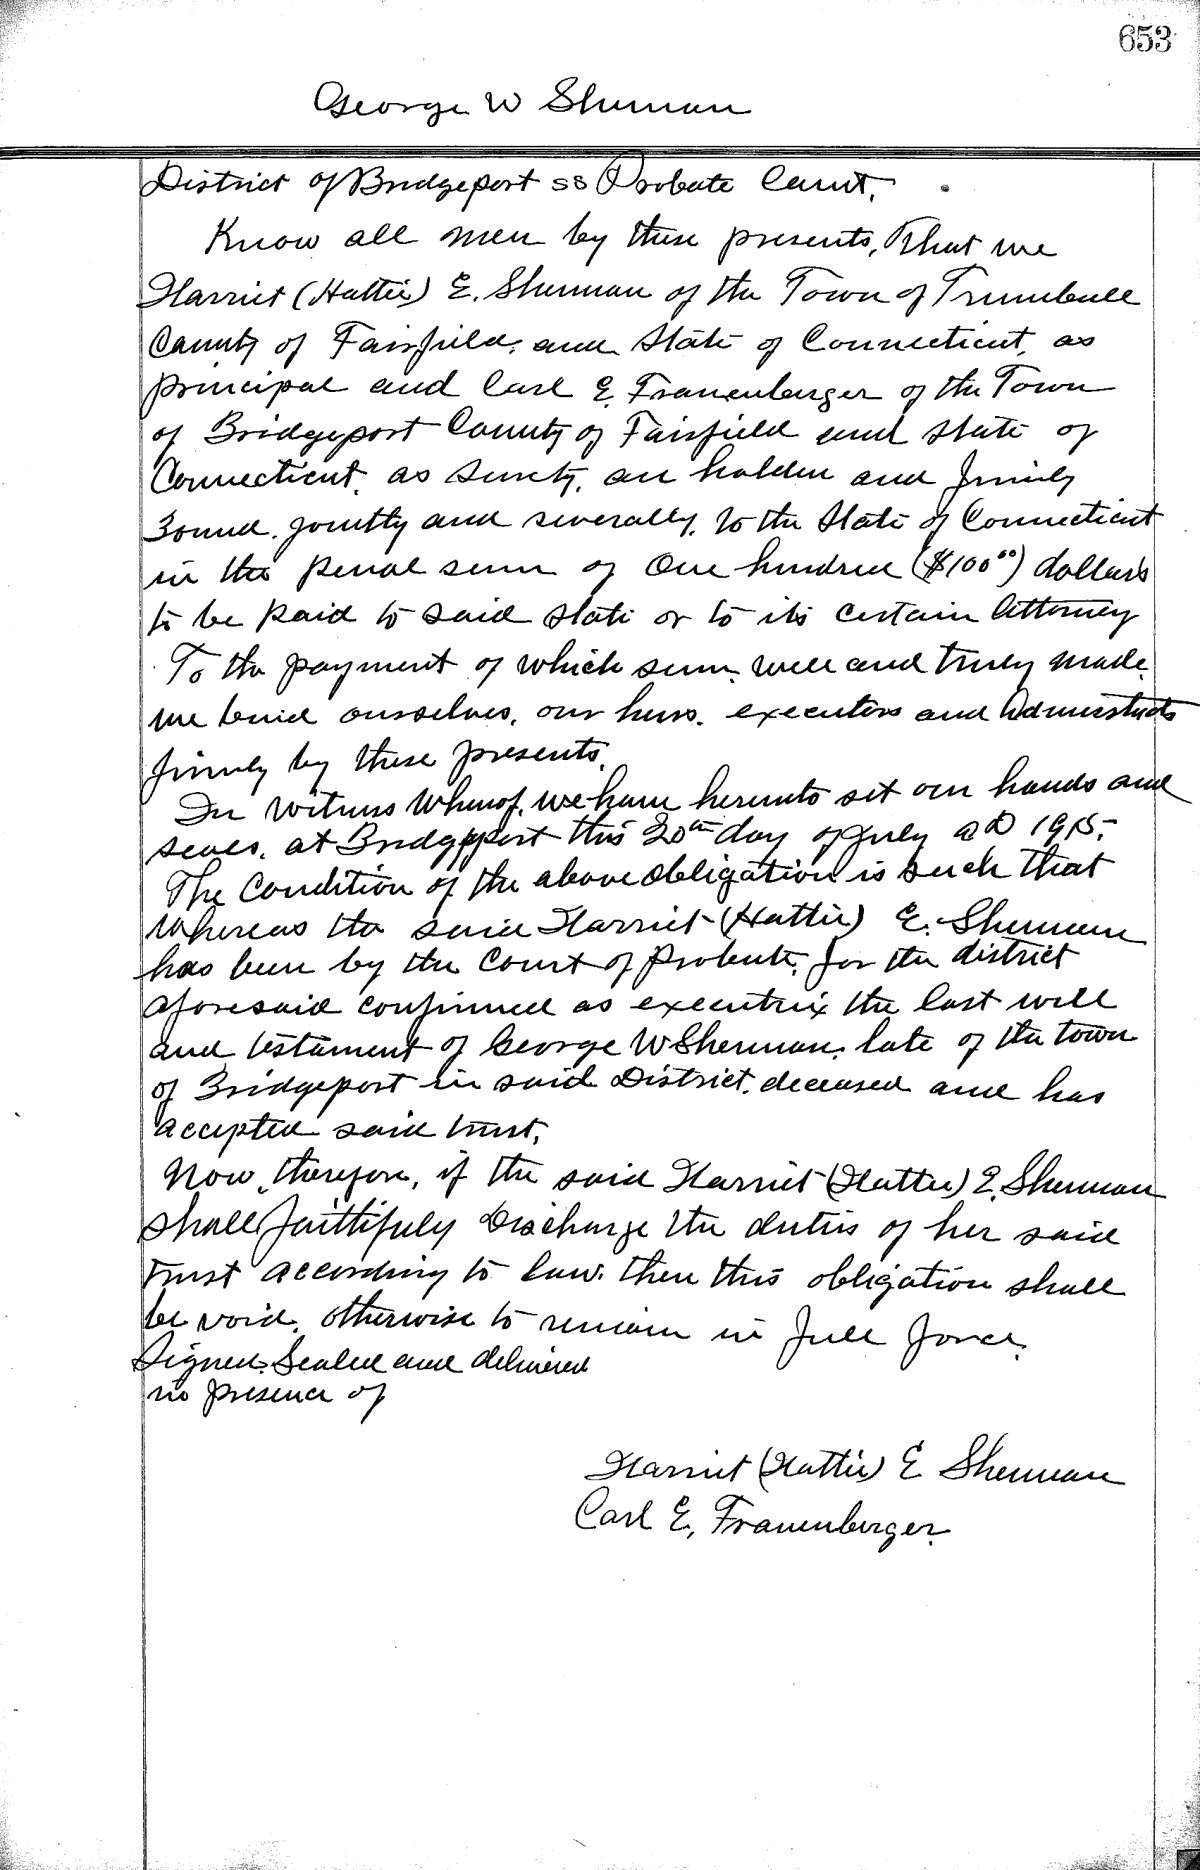 653
George W Sherman
District of Bridgeport ss Probate Court.
Know all men by these presents, That we
Harriet (Hattie) E. Sherman of the Town of Trumbull
County of Fairfield, and State of Connecticut, as
principal and Carl E. Frauenberger of the Town
of Bridgeport County of Fairfield and State of
Connecticut, as surety, are holden and firmly
Bound, jointly and severally, to the State of Connecticut
in the penal sum of One hundred ($100⁰⁰) dollars
to be paid to said state or to its certain Attorney
To the payment of which sum, well and truly made,
we bind ourselves, our heirs, executors and Administrators
firmly by these presents.
In Witness Whereof, we have hereunto set our hands and
seals, at Bridgeport this 20th day of July AD 1915.
The Condition of the above obligation is such that
Whereas the said Harriet (Hattie) E. Sherman
has been by the Court of Probate, for the district
aforesaid confirmed as executrix the last will
and testament of George W Sherman, late of the town
of Bridgeport in said District, deceased and has
accepted said trust.
Now, therefore, if the said Harriet (Hattie) E. Sherman
shall faithfuly Discharge the duties of her said
trust according to law, then this obligation shall
be void, otherwise to remain in full force.
Signed, Sealed and delivered
in presence of
Harriet (Hattie) E Sherman
Carl E. Frauenberger.